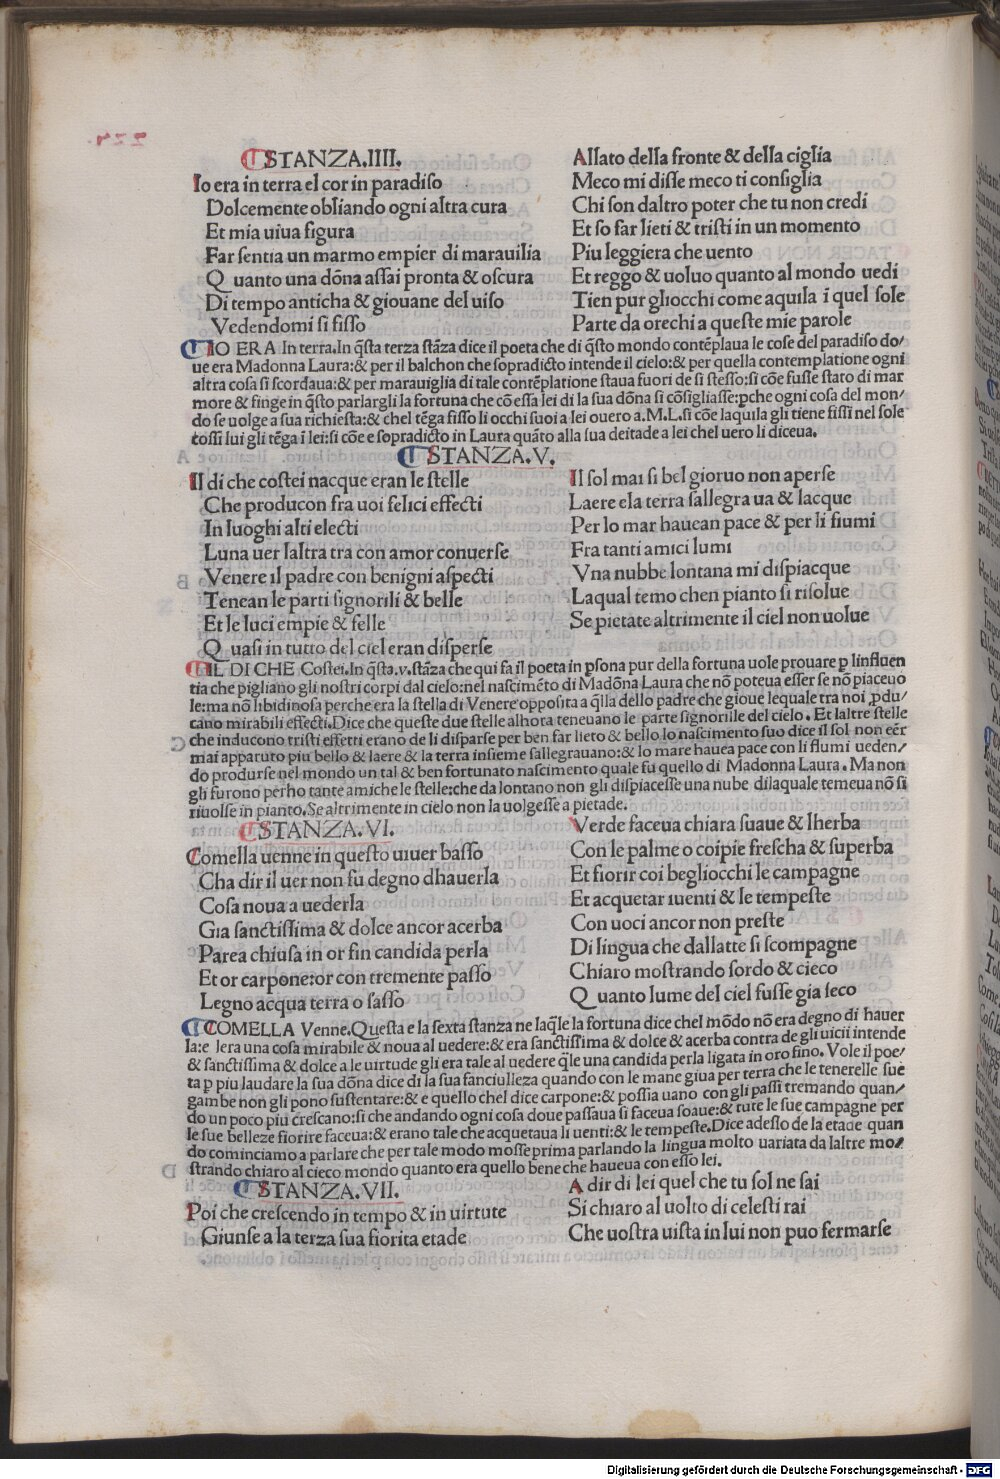 ¶STANZA.IIII.
Io era in terra el cor in paradiſo
Dolcemente obliando ogni altra cura
Et mia uiua figura
Far ſentia un marmo empier di marauilia
Q uanto una dōna aſſai pronta & oſcura
Di tempo anticha & giouane del uiſo
Vedendomi ſi fiſſo
Allato della fronte & della ciglia
Meco mi diſſe meco ti conſiglia
Chi ſon daltro poter che tu non credi
Et ſo far lieti & triſti in un momento
Piu leggiera che uento
Et reggo & uoluo quanto al mondo uedi
Tien pur gliocchi come aquila ī quel ſole
Parte da orechi a queſte mie parole
¶IO ERA In terra.In q̄ſta terza ſtāza dice il poeta che di q̄ſto mondo contēplaua le coſe del paradiſo do/
ue era Madonna Laura:& per il balchon che ſopradicto intende il cielo:& per quella contemplatione ogni
altra coſa ſi ſcordaua:& per marauiglia di tale contēplatione ſtaua fuori de ſi ſteſſo:ſi cōe fuſſe ſtato di mar
more & finge in q̄ſto parlargli la fortuna che cō eſſa lei di la ſua dōna ſi cōſigliaſſe:pche ogni coſa del mon/
do ſe uolge a ſua richieſta:& chel tēga fiſſo li occhi ſuoi a lei ouero a.M.L.ſi cōe laquila gli tiene fiſſi nel ſole
coſſi lui gli tēga ī lei:ſi cōe e ſopradicto in Laura quāto alla ſua deitade a lei chel uero li diceua.
¶STANZA.V.
Il di che coſtei nacque eran le ſtelle
Che producon fra uoi felici effecti
In luoghi alti electi
Luna uer laltra tra con amor conuerſe
Venere il padre con benigni aſpecti
Tenean le parti ſignorili & belle
Et le luci empie & felle
Q uaſi in tutto del ciel eran diſperſe
Il ſol mai ſi bel gioruo non aperſe
Laere ela terra ſallegra ua & lacque
Per lo mar hauean pace & per li fiumi
Fra tanti amici lumi
Vna nubbe lontana mi diſpiacque
Laqual temo chen pianto ſi riſolue
Se pietate altrimente il ciel non uolue
¶IL DI CHE Coſtei.In q̄ſta.v.ſtāza che qui fa il poeta in pſona pur della fortuna uole prouare p linfluen
tia che pigliano gli noſtri corpi dal cielo:nel naſcimēto di Madōna Laura che nō poteua eſſer ſe nō piaceuo
le:ma nō libidinoſa perche era la ſtella di Venere oppoſita a q̄lla dello padre che gioue lequale tra noi pdu/
cano mirabili effecti.Dice che queſte due ſtelle alhora teneuano le parte ſignorille del cielo. Et laltre ſtelle
che inducono triſti effetti erano de li diſparſe per ben far lieto & bello lo naſcimento ſuo dice il ſol non eēr
mai apparuto piu bello & laere & la terra inſieme ſallegrauano:& lo mare hauea pace con li fiumi ueden/
do produrſe nel mondo un tal & ben fortunato naſcimento quale fu quello di Madonna Laura. Ma non
gli furono perho tante amiche le ſtelle:che da lontano non gli diſpiaceſſe una nube dilaquale temeua nō ſi
riuolſe in pianto.Se altrimente in cielo non la uolgeſſe a pietade.
¶STANZA.VI.
Comella uenne in queſto uiuer baſſo
Cha dir il uer non fu degno dhauerla
Coſa noua a uederla
Gia ſanctiſſima & dolce ancor acerba
Parea chiuſa in or fin candida perla
Et or carpone:or con tremente paſſo
Legno acqua terra o ſaſſo
Verde faceua chiara ſuaue & lherba
Con le palme o coipie freſcha & ſuperba
Et fiorir coi begliocchi le campagne
Et acquetar iuenti & le tempeſte
Con uoci ancor non preſte
Di lingua che dallatte ſi ſcompagne
Chiaro moſtrando ſordo & cieco
Q uanto lume del ciel fuſſe gia ſeco
¶COMELLA Venne.Queſta e la ſexta ſtanza ne laq̄le la fortuna dice chel mōdo nō era degno di hauer
la:e lera una coſa mirabile & noua al uedere:& era ſanctiſſima & dolce & acerba contra de gli uicii intende
& ſanctiſſima & dolce a le uirtude gli era tale al uedere q̄le una candida perla ligata in oro fino. Vole il poe/
ta p piu laudare la ſua dōna dice di la ſua fanciulleza quando con le mane giua per terra che le tenerelle ſue
gambe non gli pono ſuſtentare:& e quello chel dice carpone:& poſſia uano con gli paſſi tremando quan/
do un poco piu creſcano:ſi che andando ogni coſa doue paſſaua ſi faceua ſoaue:& tute le ſue campagne per
le ſue belleze fiorire faceua:& erano tale che acquetaua li uenti:& le tempeſte.Dice adeſſo de la etade quan
do cominciamo a parlare che per tale modo moſſe prima parlando la lingua molto uariata da laltre mo/
ſtrando chiaro al cieco mondo quanto era quello bene che haueua con eſſo lei.
¶STANZA.VII.
Poi che creſcendo in tempo & in uirtute
Giunſe a la terza ſua fiorita etade
A dir di lei quel che tu ſol ne ſai
Si chiaro al uolto di celeſti rai
Che uoſtra uiſta in lui non puo fermarſe
Digitalisierung gefördert durch die Deutsche Forschungsgemeinschaft - DFG